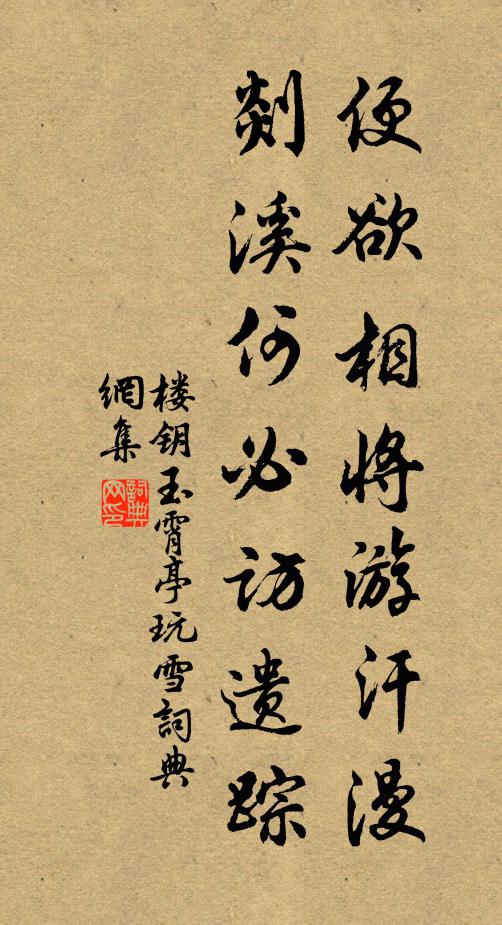 便欲相将游汗漫
剡溪何必访遗踪
楼钥玉霄亭玩雪詞典
網集
詞典
网印